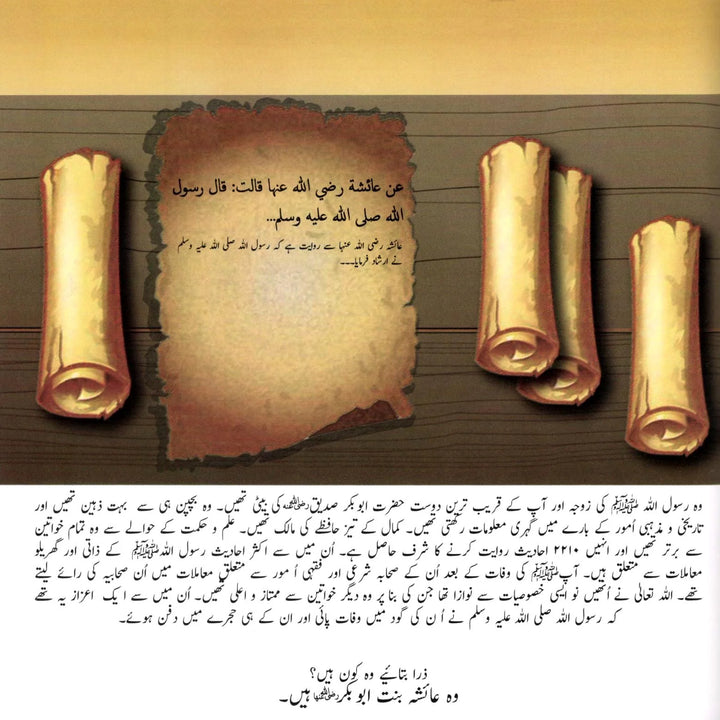 عن عائشة رضي الله عنها قالت: قال رسول
الله صلى الله عليه وسلم...
عائشہ رضی اللہ عنہا سے روایت ہے کہ رسول اللہ صلی اللہ علیہ وسلم
نے ارشاد فرمایا۔۔۔
وہ رسول اللہ ﷺ کی زوجہ اور آپ کے قریب ترین دوست حضرت ابوبکر صدیق رضی اللہ عنہ کی بیٹی تھیں۔ وہ بچپن ہی سے بہت ذہین تھیں اور
تاریخی و مذہبی اُمور کے بارے میں گہری معلومات رکھتی تھیں۔ کمال کے تیز حافظے کی مالک تھیں۔ علم و حکمت کے حوالے سے وہ تمام خواتین
سے برتر تھیں اور انہیں ۲۲۱۰ احادیث روایت کرنے کا شرف حاصل ہے۔ اُن میں سے اکثر احادیث رسول اللہ ﷺ کے ذاتی اور گھریلو
معاملات سے متعلق ہیں۔ آپ ﷺ کی وفات کے بعد اُن کے صحابہ شرعی اور فقہی اُمور سے متعلق معاملات میں اُن صحابیہ کی رائے لیتے
تھے۔ اللہ تعالیٰ نے اُنھیں نو ایسی خصوصیات سے نوازا تھا جن کی بنا پر وہ دیگر خواتین سے ممتاز و اعلیٰ تھیں۔ اُن میں سے ایک اعزاز یہ تھے
کہ رسول اللہ صلی اللہ علیہ وسلم نے اُن کی گود میں وفات پائی اور ان کے ہی حجرے میں دفن ہوئے۔
ذرا بتائیے وہ کون ہیں؟
وہ عائشہ بنت ابوبکر رضی اللہ عنہا ہیں۔